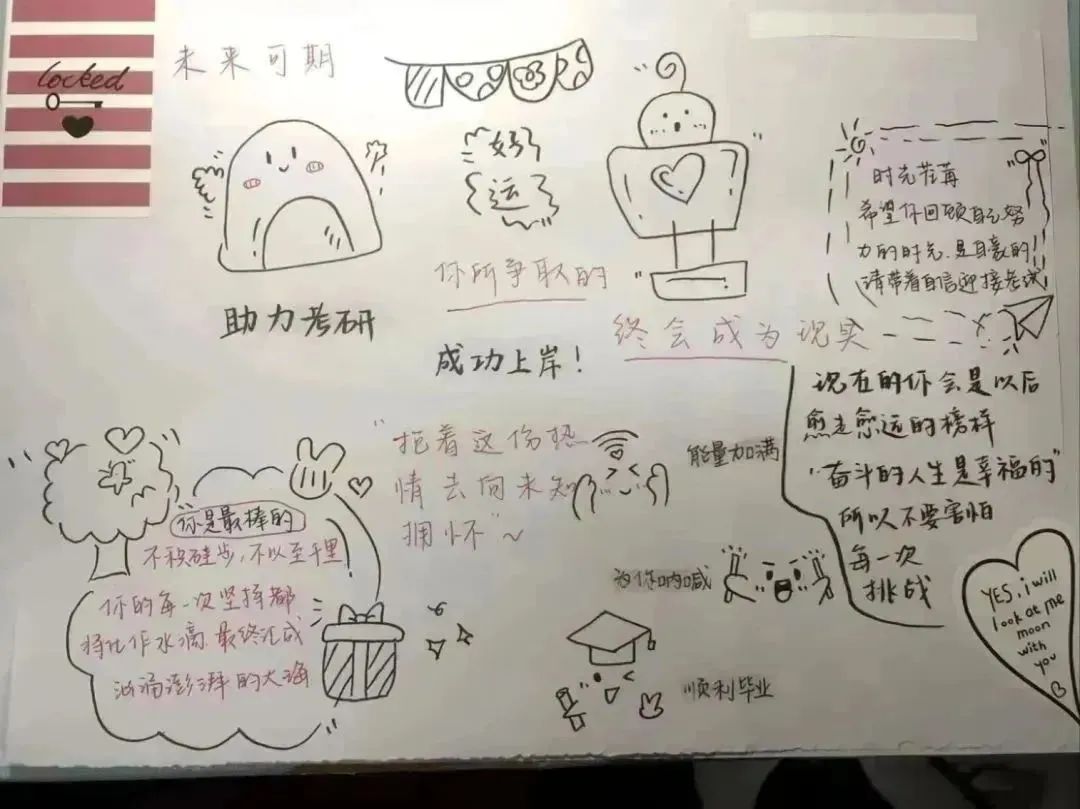 locked
未来可期
好
运
助力考研
你所争取的
终会成为现实
成功上岸！
时光荏苒
希望你回顾自己努
力的时光，是自豪的！
请带着自信迎接考试
现在的你会是以后
愈走愈远的榜样
"奋斗的人生是幸福的"
所以不要害怕
每一次
挑战
"抱着这份热
情去向未知
拥怀"~
能量加满
为你呐喊
顺利毕业
你是最棒的
不积硅步，不以至千里
你的每一次坚持都
将化作水滴，最终汇成
汹涌澎湃的大海
YES, i will
look at me
moon
with
you